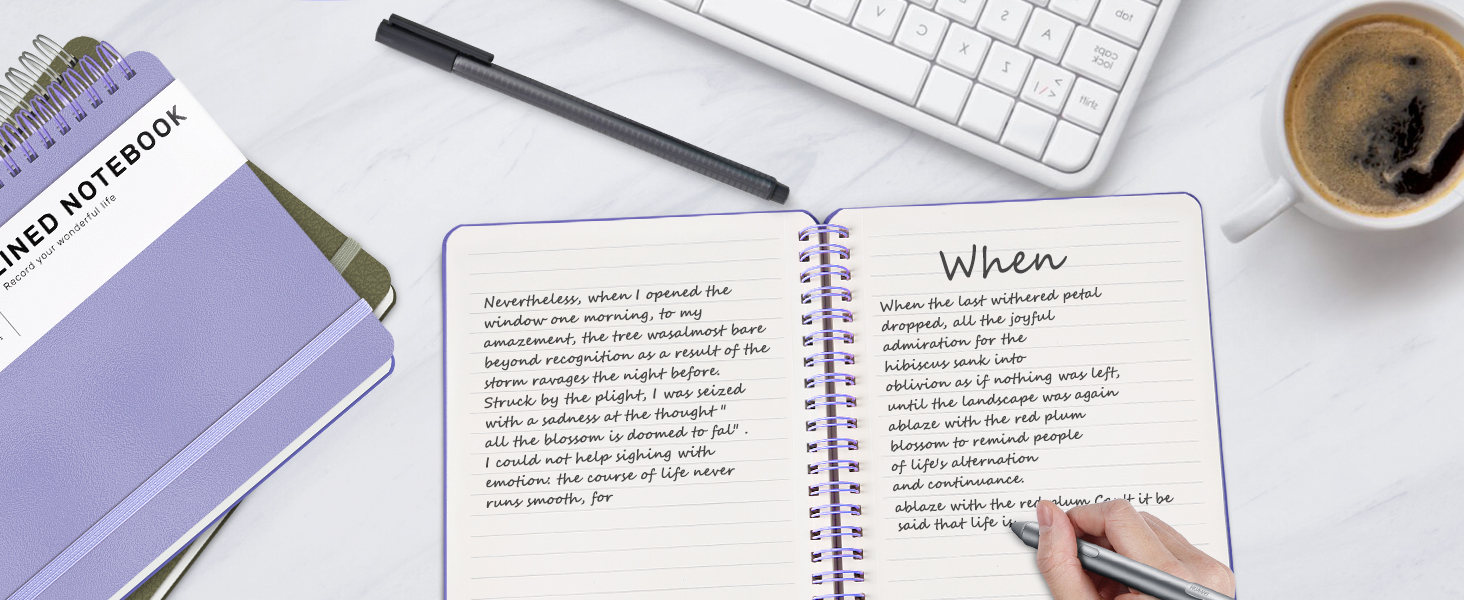 LINED NOTEBOOK
Record your wonderful life
Nevertheless, when I opened the
window one morning, to my
amazement, the tree wasalmost bare
beyond recognition as a result of the
storm ravages the night before.
Struck by the plight, I was seized
with a sadness at the thought "
all the blossom is doomed to fal" .
I could not help sighing with
emotion: the course of life never
runs smooth, for
When
When the last withered petal
dropped, all the joyful
admiration for the
hibiscus sank into
oblivion as if nothing was left,
until the landscape was again
ablaze with the red plum
blossom to remind people
of life's alternation
and continuance.
ablaze with the red plum Can't it be
said that life is
tab
caps lock
shift
A
S
Z
X
C
V